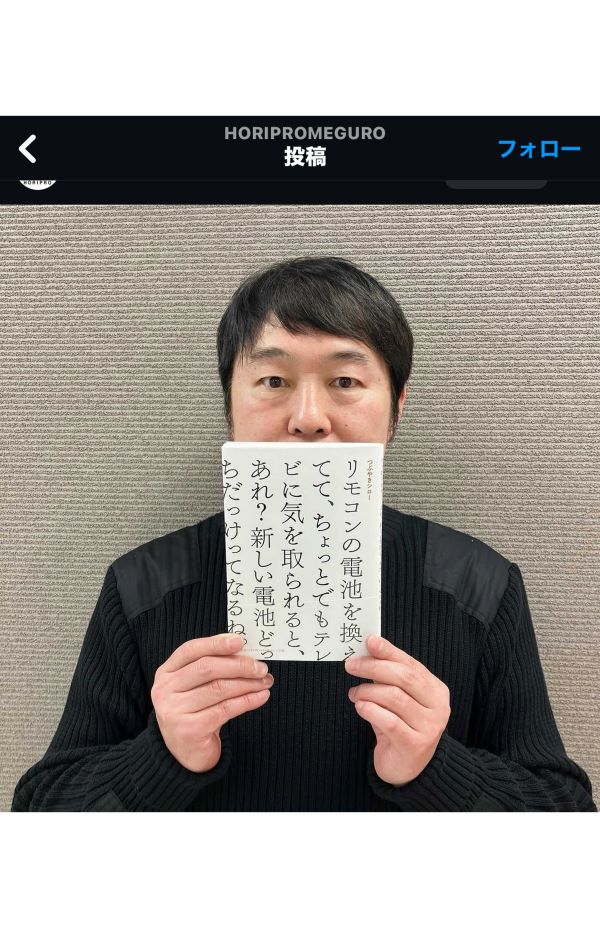 HORIPROMEGURO
投稿
フォロー
HORIPRO
つぶやきシロー
リモコンの電池を換え
てて、ちょっとでもテレ
ビに気を取られると、
あれ？新しい電池どっ
ちだっけってなるね。